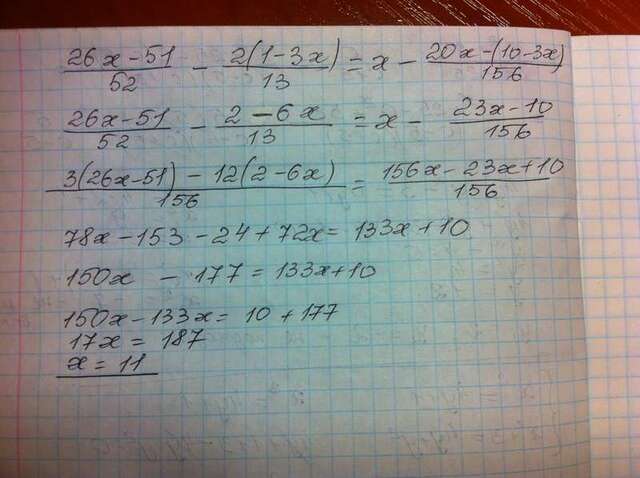 (26x-51)/52 - 2(1-3x)/13 = x - (20x-(10-3x))/156
(26x-51)/52 - (2-6x)/13 = x - (23x-10)/156
(3(26x-51)-12(2-6x))/156 = (156x-23x+10)/156
78x-153-24+72x=133x+10
150x - 177=133x+10
150x-133x= 10+177
17x = 187
x = 11